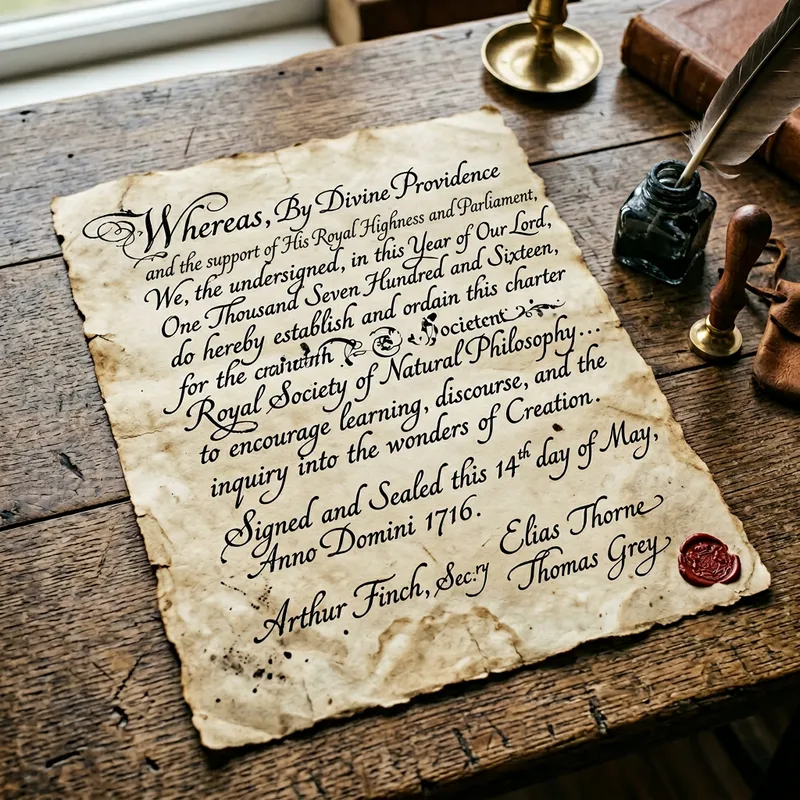 Whereas, By Divine Providence
and the support of His Royal Highness and Parliament,
We, the undersigned, in this Year of Our Lord,
One Thousand Seven Hundred and Sixteen,
do hereby establish and ordain this charter
for the
Royal Society of Natural Philosophy...
to encourage learning, discourse, and the
inquiry into the wonders of Creation.
Signed and Sealed this 14th day of May,
Anno Domini 1716.
Elias Thorne
Arthur Finch, Sec:ry
Thomas Grey